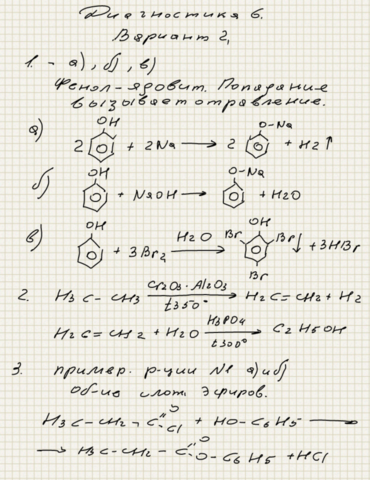 Диагностика 6.
Вариант 2,
1. - а), б), в)
Фенол-ядовит. Попадание
вызывает отравление.
а) 2 OH + 2Na → 2 O-Na + H2↑
б) OH + NaOH → O-Na + H2O
в) OH + 3Br2 H2O → OH Br Br Br ↓ + 3HBr
2. H3C-CH3 Cr2O3·Al2O3 t350° → H2C=CH2 + H2
H2C=CH2 + H2O H3PO4 t300° → C2H5OH
3. пример. р-ции №1 а) и б)
сложн. эфиров.
H3C-CH2-C O Cl + HO-C6H5 →
→ H3C-CH2-C O O-C6H5 + HCl